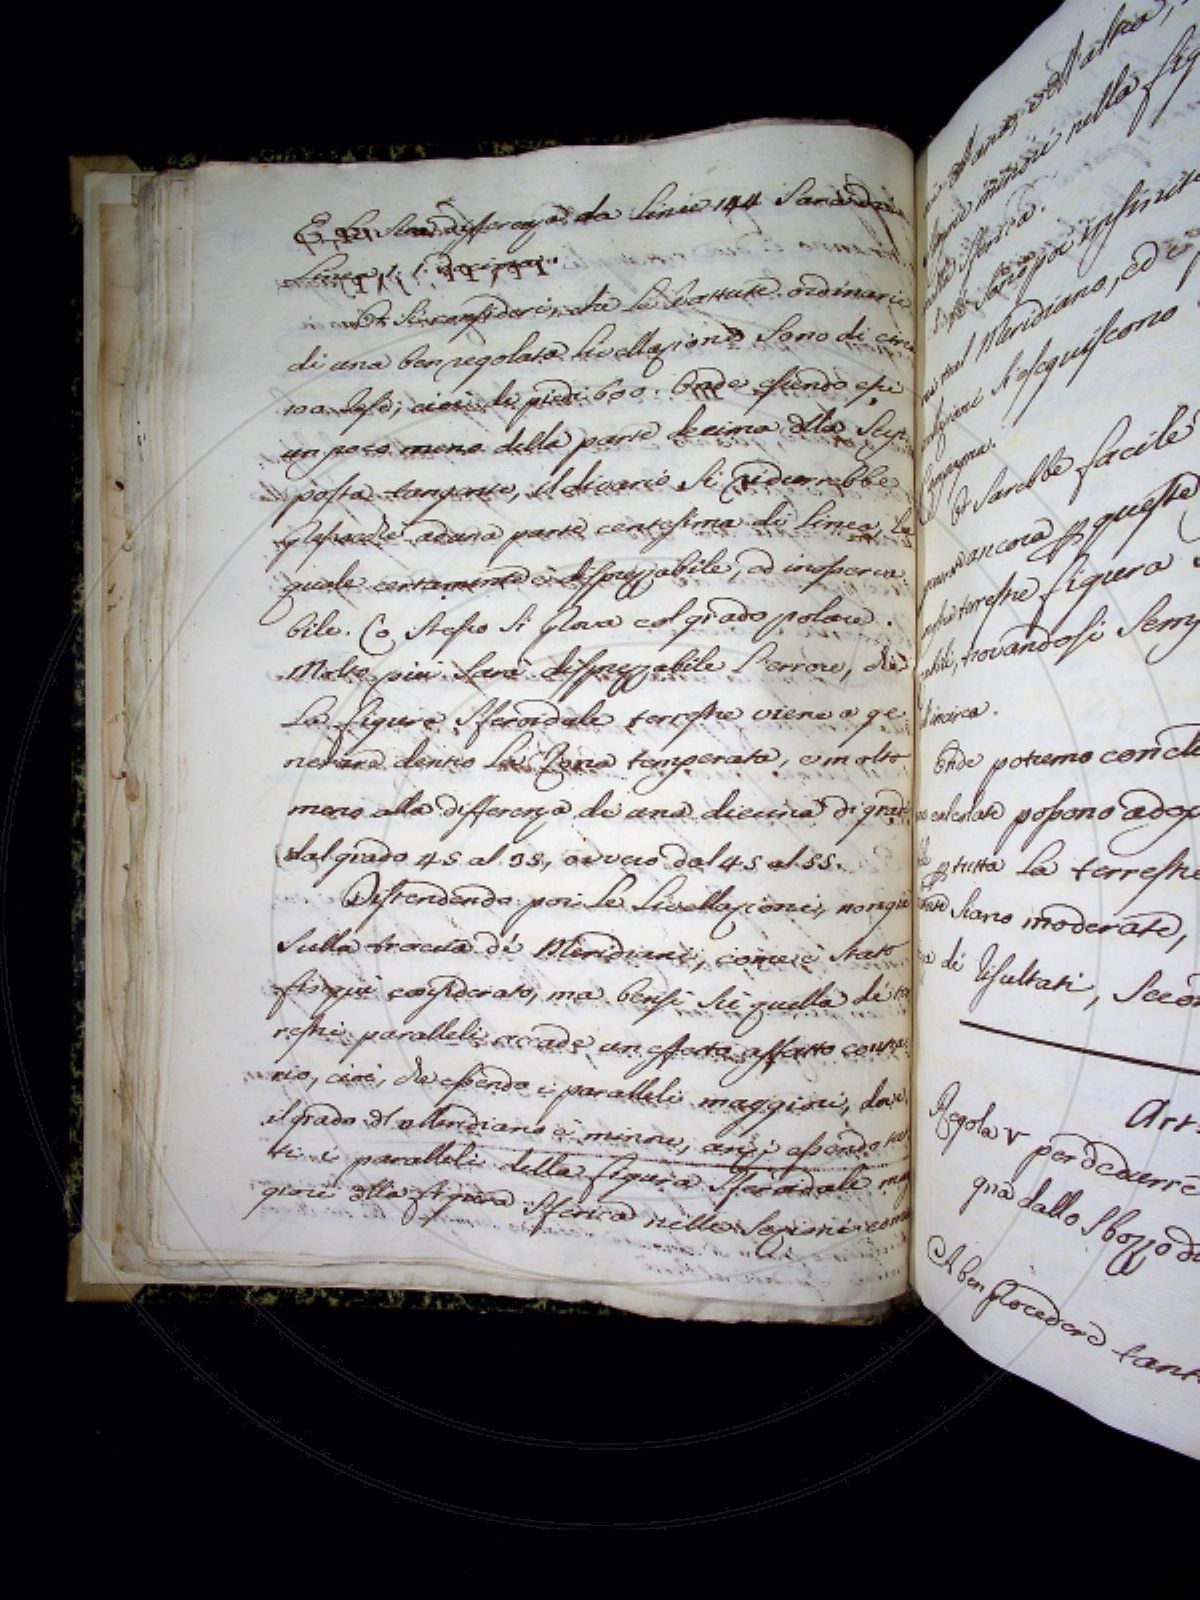 E la sua differenza da linie 144 sarà di
Linea
Or si consideri, che le battute ordinarie
di una ben regolata livellazione sono di circa
100 Passi; cioè di piedi 600. Onde essendo essi
un poco meno della parte decima della sup-
posta tangente, il divario si ridurrebbe
pressochè ad una parte centesima di linea, la
quale certamente è disprezzabile, ed inosserva-
bile. Lo stesso si prova col grado polare.
Molto più sarà disprezzabile l'errore, che
la figura sferoidale terrestre viene a ge-
nerare dentro la Zona temperata, e molto
meno alla differenza di una diecina di gradi
dal grado 45 al 35, ovvero dal 45 al 55.
Distendendo poi le Livellazioni, non già
sulla traccia de' Meridiani, come è stato
finquì considerato, ma bensì sù quella de' ter-
restri paralleli, accade un effetto affatto contra-
rio, cioè, che essendo i paralleli maggiori, dove
il grado del Meridiano è minore, anzi essendo tut-
ti i paralleli della figura sferoidale mag-
giori della figura sferica nelle sezioni
dall'altra,
minore nella fig
sferica.
Sarà poi infinite
nel Meridiano, ed
si eseguiscono
Campagna.
Or sarebbe facile
ancora per queste
terrestre figura
trovandosi semp
incirca.
Onde potremo concl
calcolate possono adop
per tutta la terrestre
siano moderate,
de' risultati, secon
Art.
Regola V per dedurre
gna dallo sbozzo d
A ben procedere tant